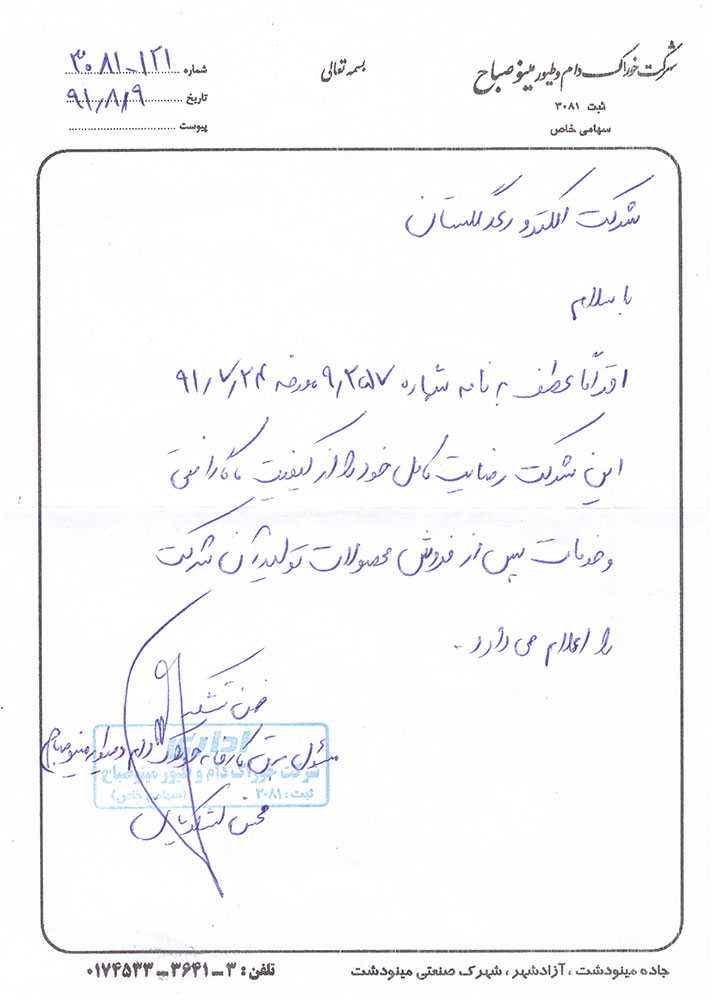 شرکت خوراک دام و طیور مینو صباح
ثبت ۳۰۸۱
سهامی خاص
بسمه تعالی
شماره ۳۰۸۱-۱۲۱
تاریخ ۹۱/۸/۹
پیوست
شرکت الکترو رعد گلستان
با سلام
احتراماً عطف به نامه شماره مورخه ۹۱/۷/۲۴
این شرکت رضایت کامل خود را از کیفیت
و خدمات پس از فروش محصولات تولیدی آن شرکت
را اعلام می دارد.
ضمن تشکر
مسئول برق کارخانه خوراک دام و طیور مینو صباح
محسن
اداری
شرکت خوراک دام و طیور مینوصباح
ثبت: ۳۰۸۱ (سهامی خاص)
جاده مینودشت ، آزادشهر ، شهرک صنعتی مینودشت
تلفن: ۳-۳۶۴۱-۰۱۷۴۵۳۳